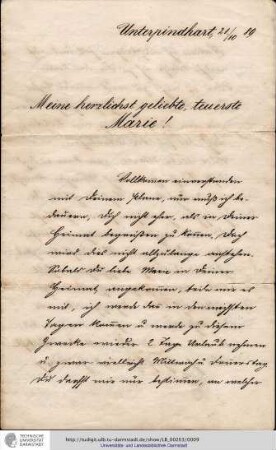 Unterpindhart, 21/10 19
Meine herzlichst geliebte, teuerste
Marie!
Vollkommen einverstanden
mit Deinem Plane, nur muß ich be-
dauern, Dich nicht eher, als in Deiner
Heimat begrüßen zu können. Doch
wird dies nicht allzulange anstehen.
Sobald Du liebe Marie in Deiner
Heimat angekommen, teile mir es
mit, ich werde das in den nächsten
Tagen kommen u werde zu diesem
Zwecke wieder 2 Tag Urlaub nehmen
u zwar vielleicht Mittwoch u Donnerstag
Du darfst mir nur bestimmen, an welcher
TECHNISCHE
UNIVERSITÄT
DARMSTADT
http://tudigit.ulb.tu-darmstadt.de/show/LB_00203/0009
Universitäts- und Landesbibliothek Darmstadt